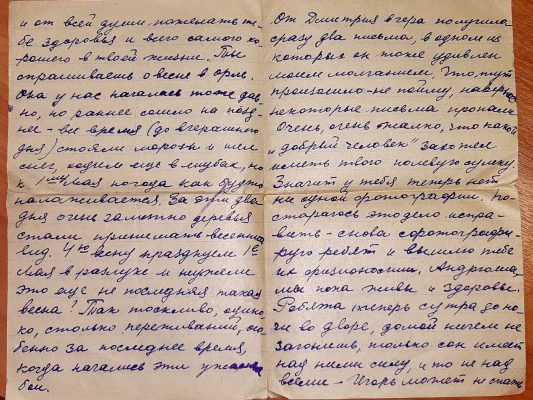 и от всей души пожелать те-
бе здоровья и всего самого хо-
рошего в твоей жизни. Ты
спрашиваешь о весне в Орле.
Она у нас началась тоже дав-
но, но раннее сошло на позд-
нее – все время (до вчерашнего
дня) стояли морозы и шел
снег, ходили еще в шубах, но
к 1му Мая погода как будто
налаживается. За эти два
дня очень заметно деревья
стали принимать весенний
вид. 4ю весну празднуем 1е
мая в разлуке и неужели
это еще не последняя такая
весна? Так тоскливо, одино-
ко, столько переживаний, осо-
бенно за последнее время,
когда начались эти ужасные
бои.
От Дмитрия вчера получила
сразу два письма, в одном из
которых он тоже удивлен
моим молчанием. Что тут
произошло – не пойму, наверное
некоторые письма пропали.
Очень, очень жалко, что какой-то
„добрый человек" захотел
иметь твою полевую сумку.
Значит и у тебя теперь нет
ни одной фотографии. По-
стараюсь это дело испра-
вить – снова сфотографи-
рую ребят и вышлю тебе
их физиономии, Андрюша,
мы пока живы и здоровы.
Ребята теперь с утра до но-
чи во дворе, домой ничем не
загонишь, только сон имеет
над ними силу, и то не над
всеми – Игорь может не спать